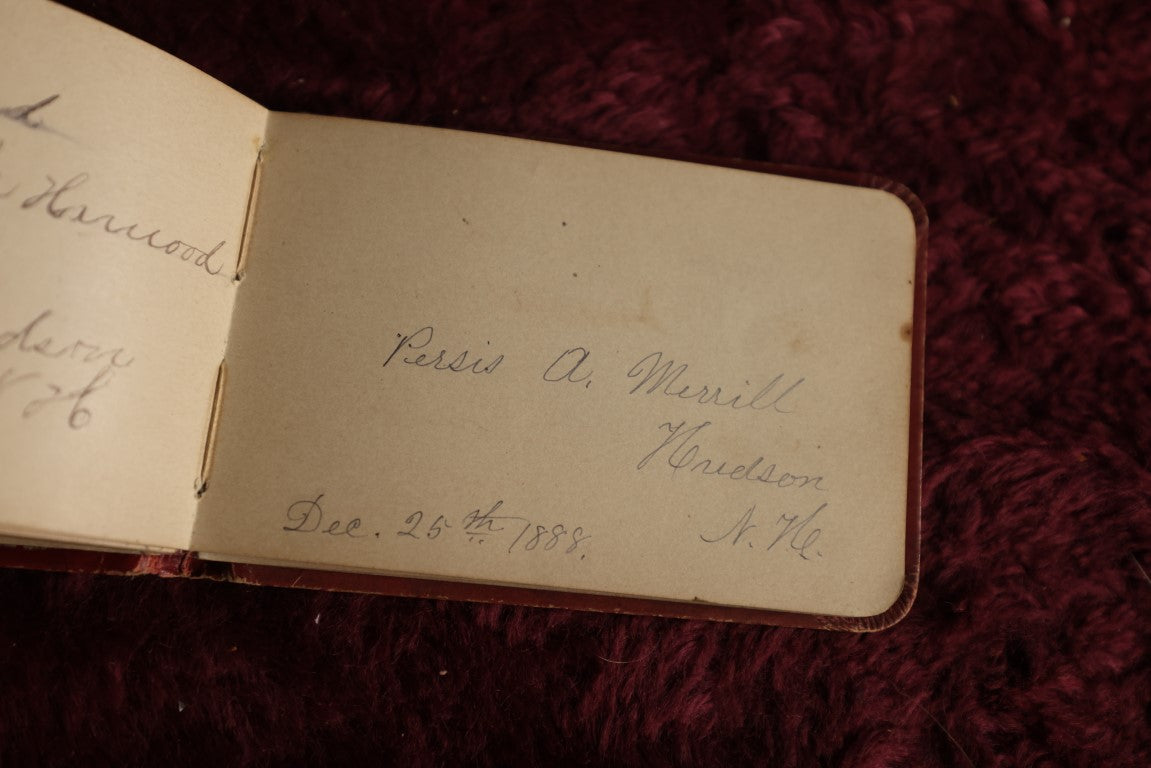 Harwood
N H
Persis A. Merrill
Hudson
N. H.
Dec. 25th 1888.